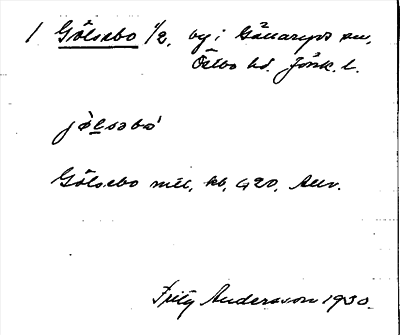 1 Gölsebo 1/2, by i Gällaryds sn,
Östbo hd. Jönk. l.
jø̀lsəbó
Gölsebo mtl, kb, G20,
Fritz Andersson 1930.